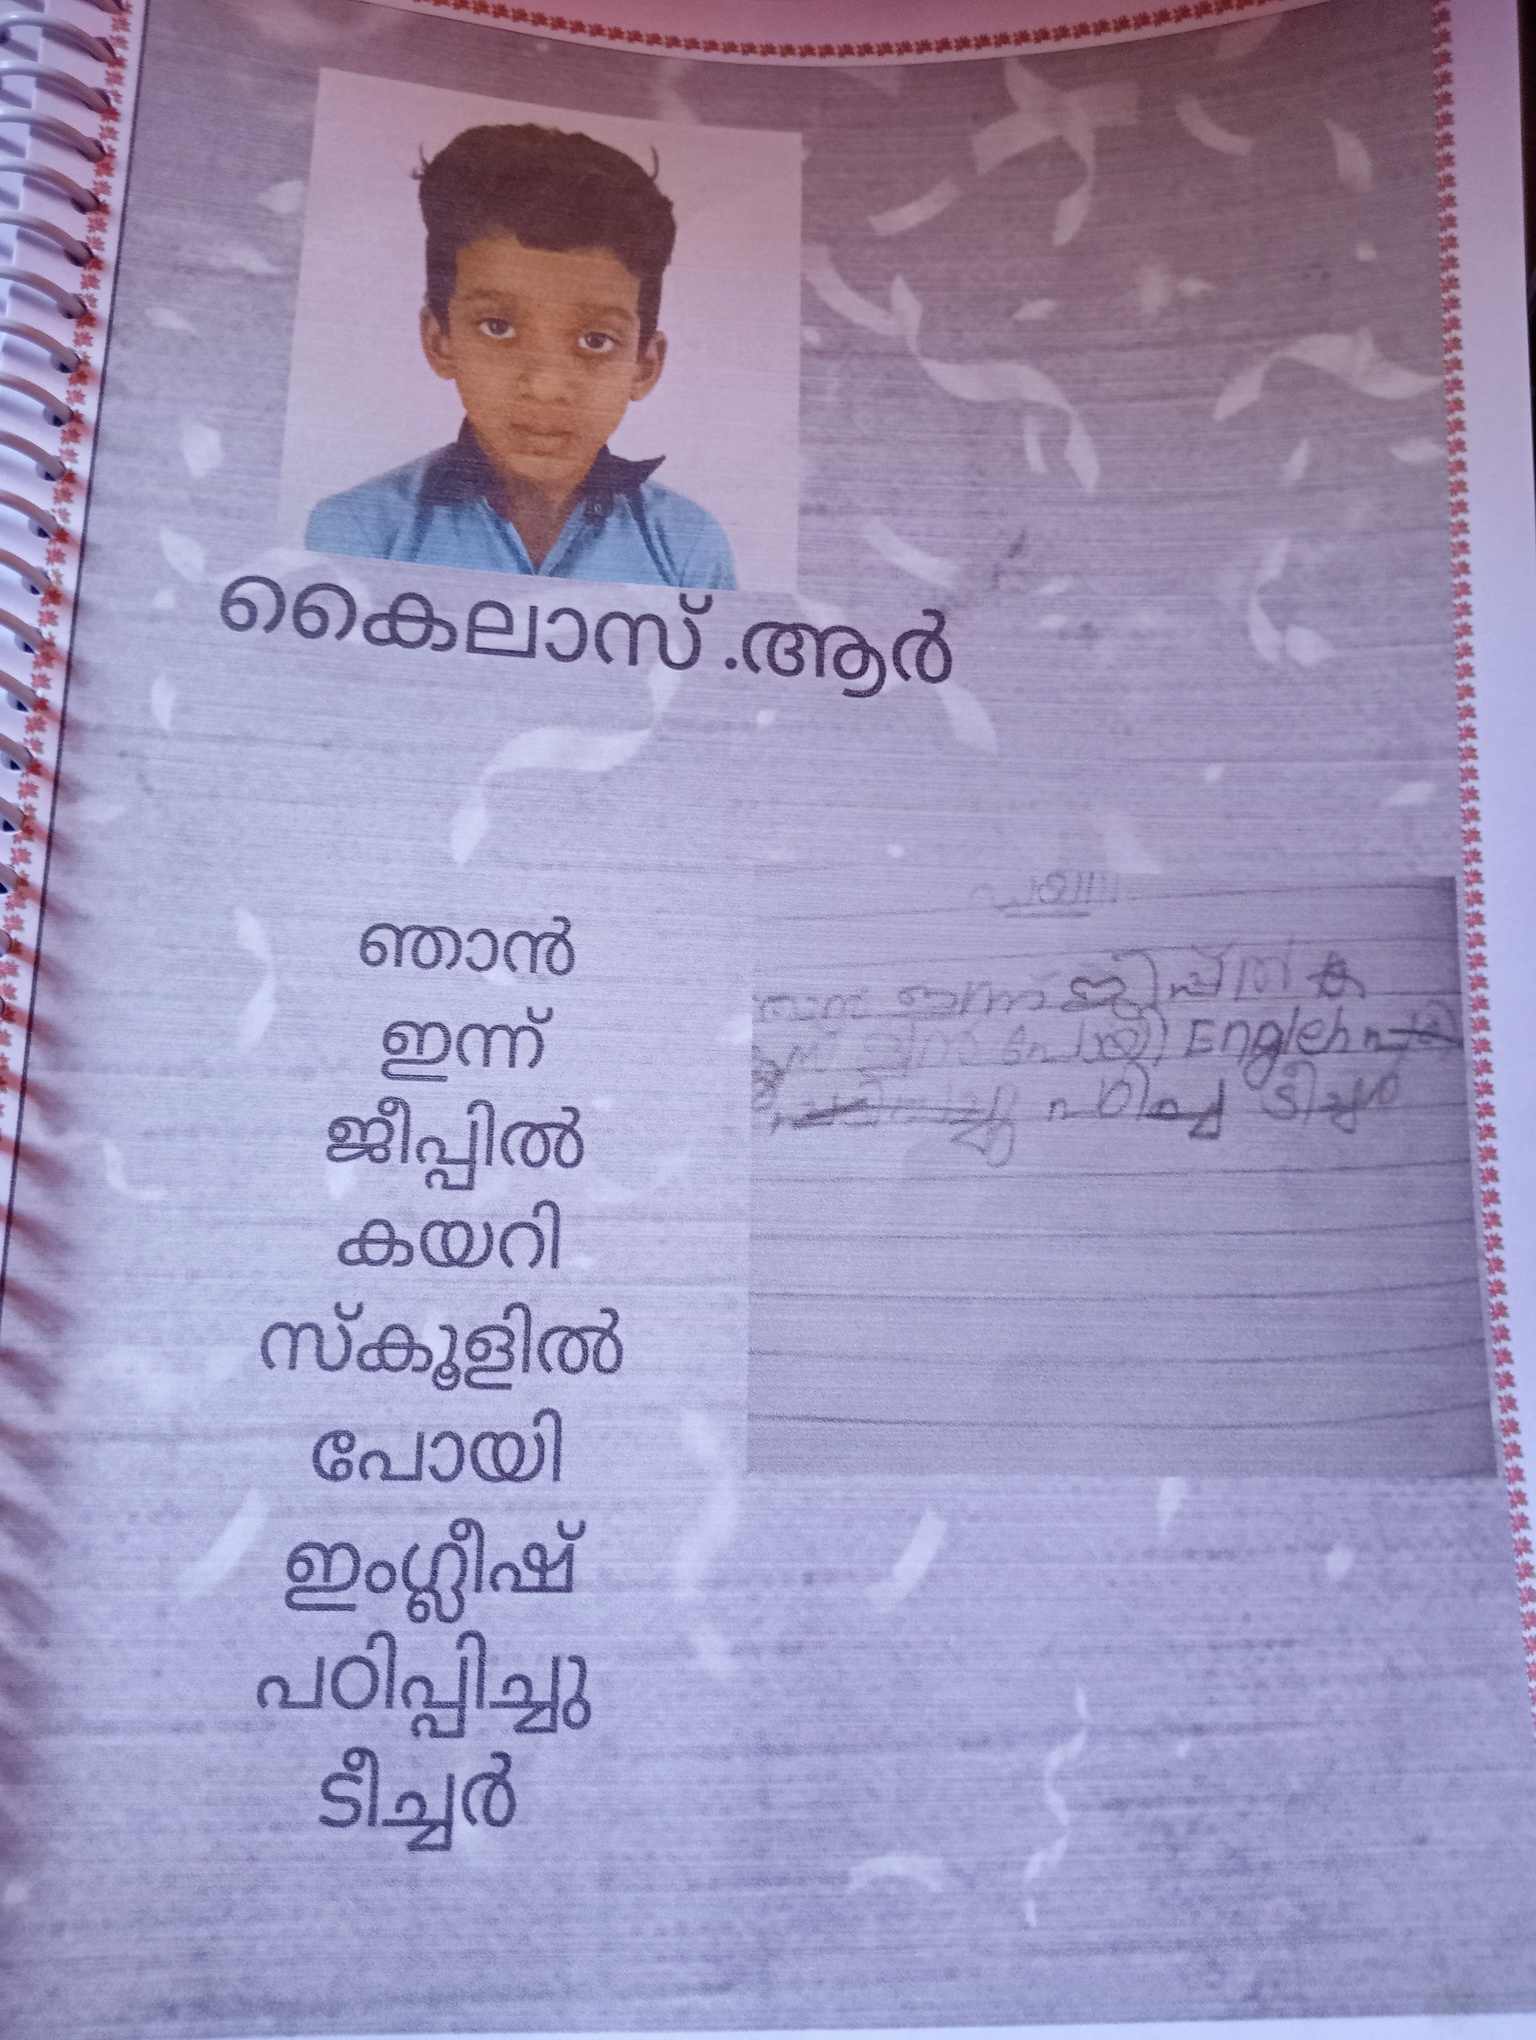 കൈലാസ് .ആർ
ഞാൻ
ഇന്ന്
ജീപ്പിൽ
കയറി
സ്കൂളിൽ
പോയി
ഇംഗ്ലീഷ്
പഠിപ്പിച്ചു
ടീച്ചർ
ഇന്ന് ജീപ്പിൽ ക
പോയി
ടീച്ചർ